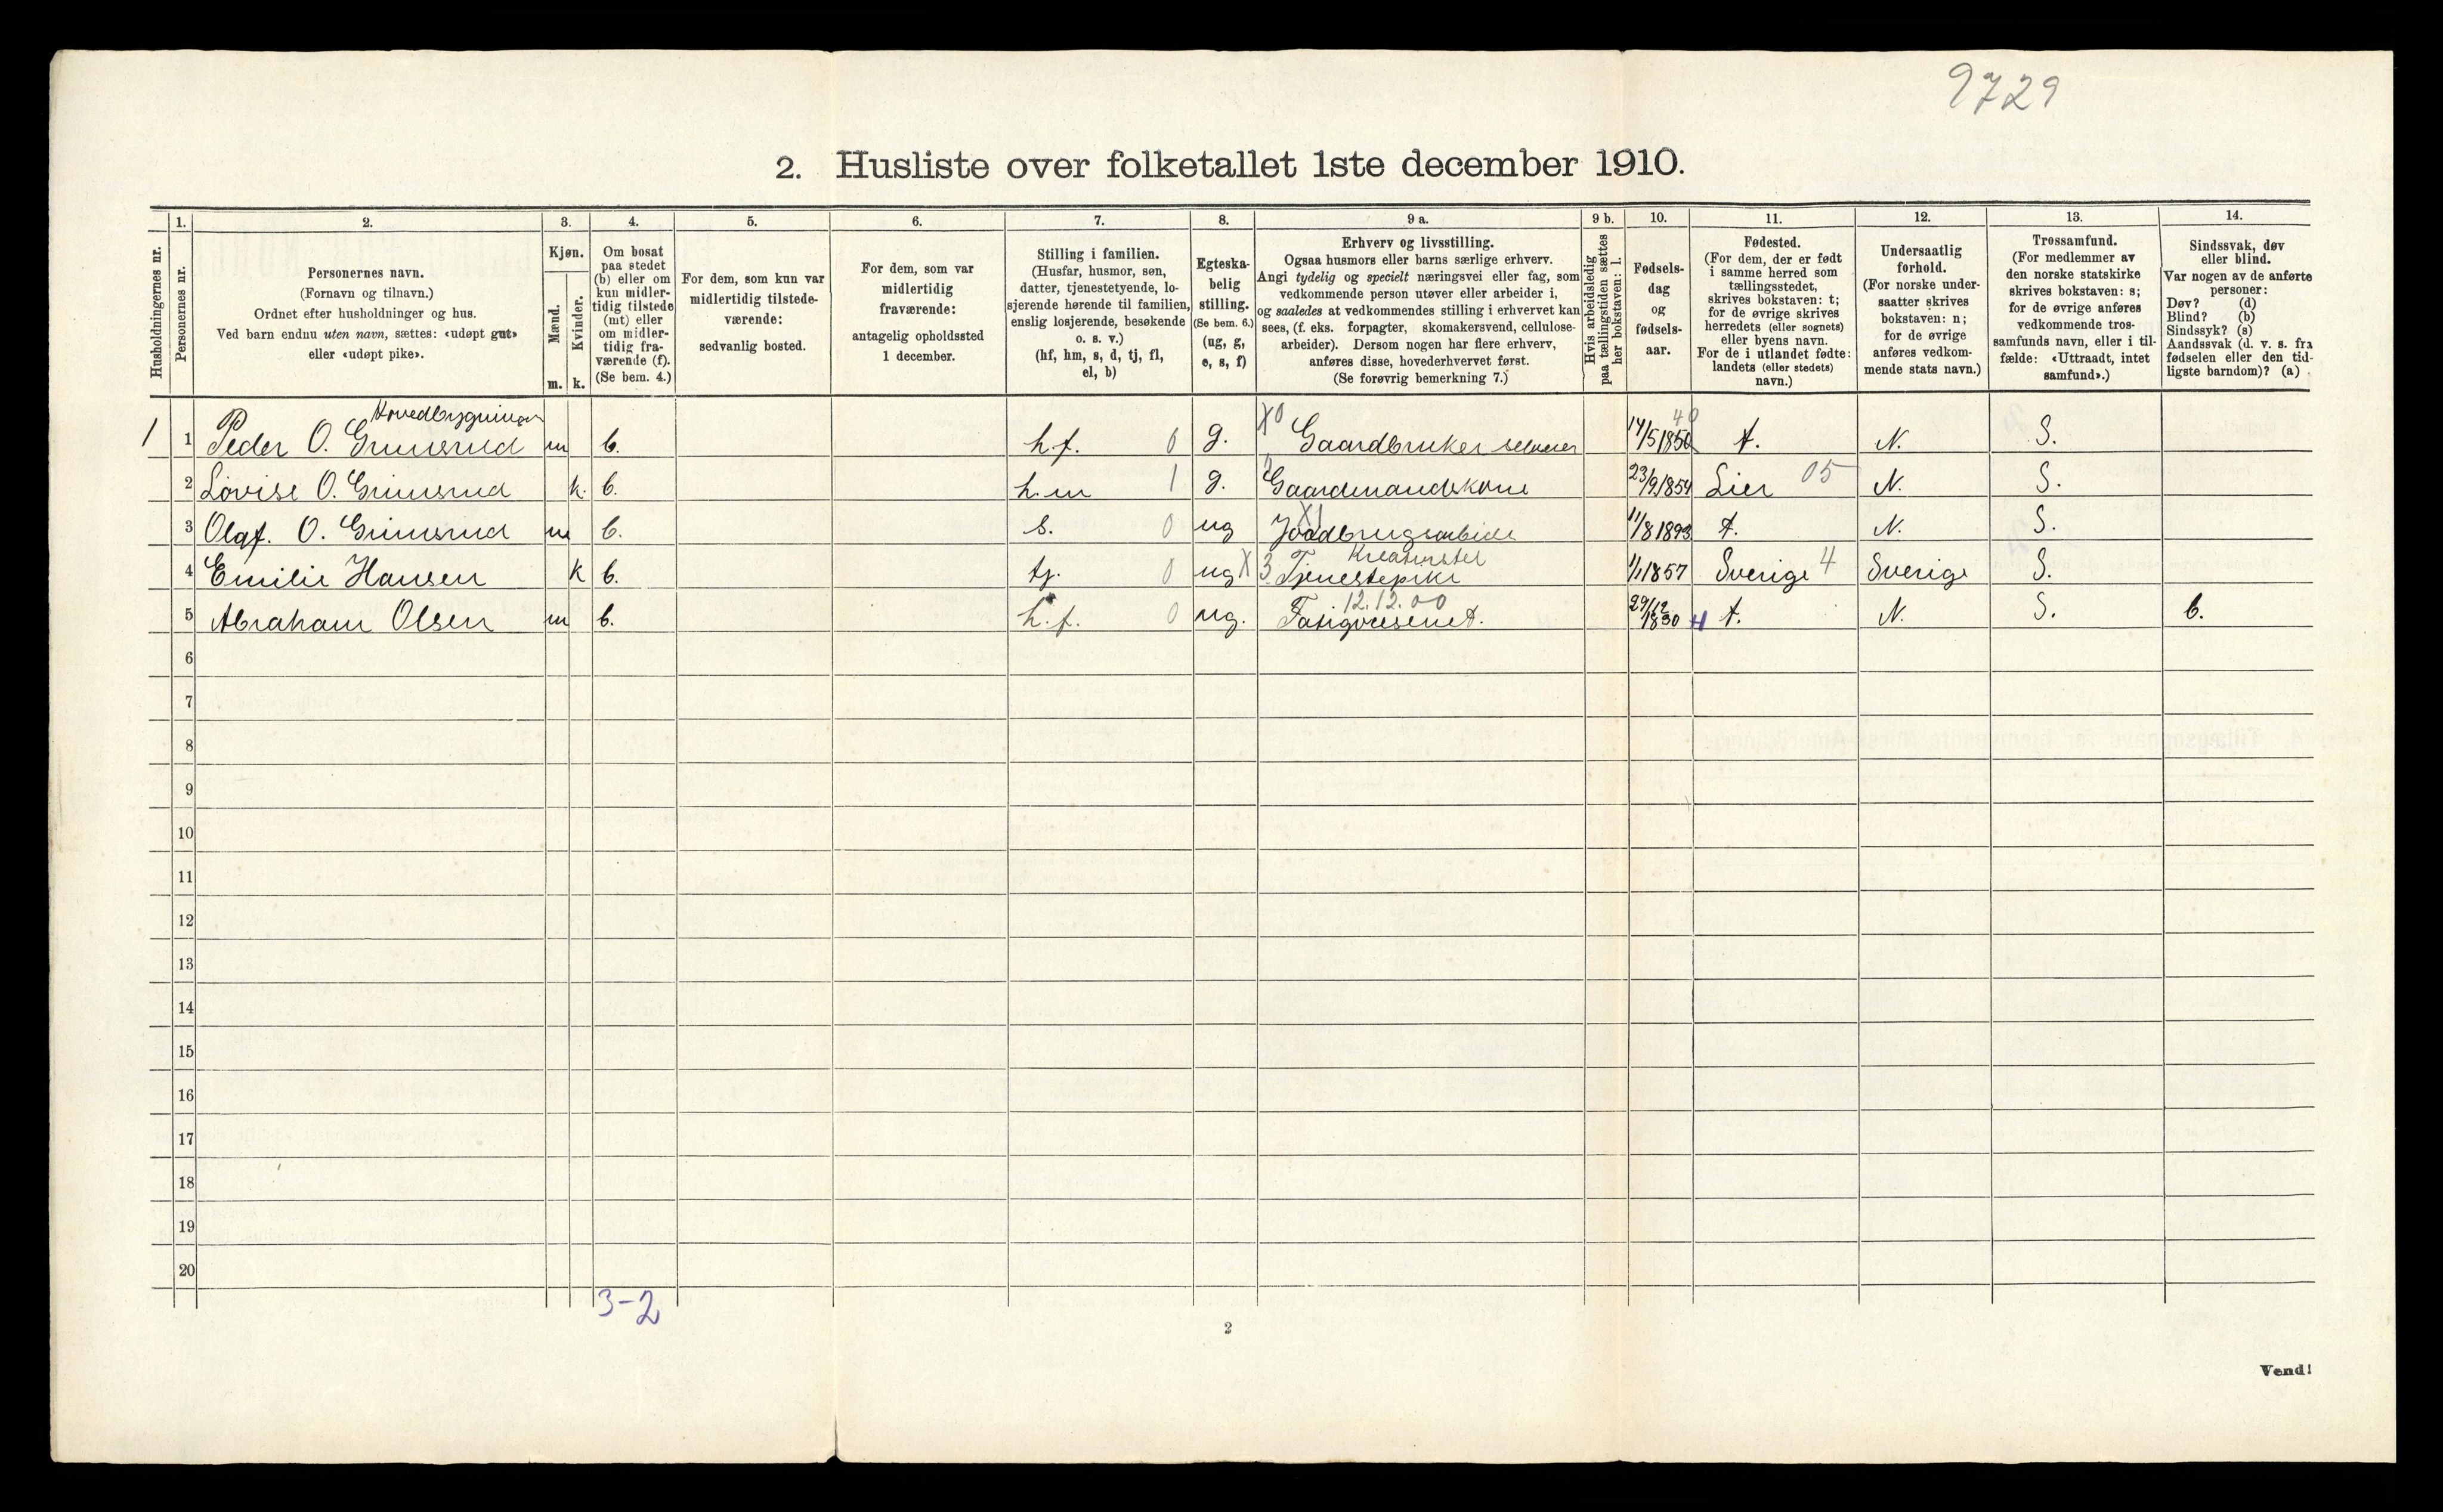 9729
2. Husliste over folketallet 1ste december 1910.
Husholdningernes nr.
1.
Personernes nr.
2.
Personernes navn.
(Fornavn og tilnavn.)
Ordnet efter husholdninger og hus.
Ved barn endnu uten navn, sættes: «udøpt gut»
eller «udøpt pike».
3.
Kjøn.
Mænd.
Kvinder.
m. k.
4.
Om bosat
paa stedet
(b) eller om
kun midler-
tidig tilstede
(mt) eller
om midler-
tidig fra-
værende (f).
(Se bem. 4.)
5.
For dem, som kun var
midlertidig tilstede-
værende:
sedvanlig bosted.
6.
For dem, som var
midlertidig
fraværende:
antagelig opholdssted
1 december.
7.
Stilling i familien.
(Husfar, husmor, søn,
datter, tjenestetyende, lo-
sjerende hørende til familien,
enslig losjerende, besøkende
o. s. v.)
(hf, hm, s, d, tj, fl,
el, b)
8.
Egteska-
belig
stilling.
(Se bem. 6.)
(ug, g,
e, s, f)
9 a.
Erhverv og livsstilling.
Ogsaa husmors eller barns særlige erhverv.
Angi tydelig og specielt næringsvei eller fag, som
vedkommende person utøver eller arbeider i,
og saaledes at vedkommendes stilling i erhvervet kan
sees, (f. eks. forpagter, skomakersvend, cellulose-
arbeider). Dersom nogen har flere erhverv,
anføres disse, hovederhvervet først.
(Se forøvrig bemerkning 7.)
9 b.
Hvis arbeidsledig
paa tællingstiden sættes
her bokstaven: l.
10.
Fødsels-
dag
og
fødsels-
aar.
11.
Fødested.
(For dem, der er født
i samme herred som
tællingsstedet,
skrives bokstaven: t;
for de øvrige skrives
herredets (eller sognets)
eller byens navn.
For de i utlandet fødte:
landets (eller stedets)
navn.)
12.
Undersaatlig
forhold.
(For norske under-
saatter skrives
bokstaven: n;
for de øvrige
anføres vedkom-
mende stats navn.)
13.
Trossamfund.
(For medlemmer av
den norske statskirke
skrives bokstaven: s;
for de øvrige anføres
vedkommende tros-
samfunds navn, eller i til-
fælde: «Uttraadt, intet
samfund».)
14.
Sindssvak, døv
eller blind.
Var nogen av de anførte
personer:
Døv? (d)
Blind? (b)
Sindssyk? (s)
Aandssvak (d. v. s. fra
fødselen eller den tid-
ligste barndom)? (a)
Hovedbygningen
1 1 Peder O. Grimsrud m b. h.f. 0 g. X0 Gaardbruker selveier 14/5 1850 40 t. N. S.
2 Lovise O. Grimsrud k. b. h.m 1 g. Gaardmandskone 23/9 1854 Lier 05 N. S.
3 Olaf. O. Grimsrud m b. s. 0 ug X1 Jordbrugsarbide 11/8 1893 t. N. S.
4 Emilie Hansen k b. tj. 0 ug X3 Tjenestepike Kreaturstel 1/1 1857 Sverige 4 Sverige S.
5 Abraham Olsen m b. h.f. 0 ug. Fatigvæsenet. 12.12.00 29/12 1830 H t. N. S. b.
6
7
8
9
10
11
12
13
14
15
16
17
18
19
20
3-2
2
Vend!